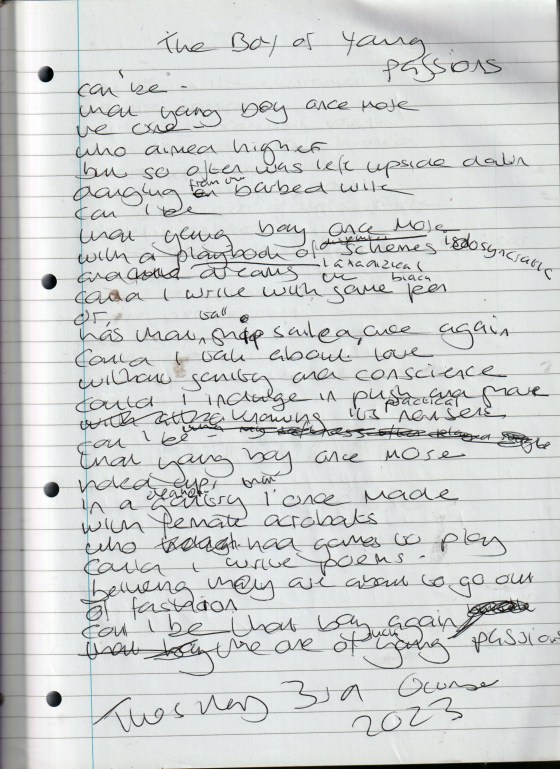 The Boy of Young
passions
can be
that young boy once more
the one
who aimed higher
but so often was left upside down
danging from the barbed wire
can I be
that young boy once more
with a playbook of schemes idosyncratic
and dreams
could I write with same pen
or
has that ship sailed once again
could I talk about love
without sanity and conscience
could I indulge in push and shove
knowing its practical nonsense
can I be
that young boy once more
holed up
in a once made
with female acrobats
who had games to play
could I write poems
they are about to go out
of fashion
can I be that boy again
the one of such young passions
Tuesday 3rd October
2023